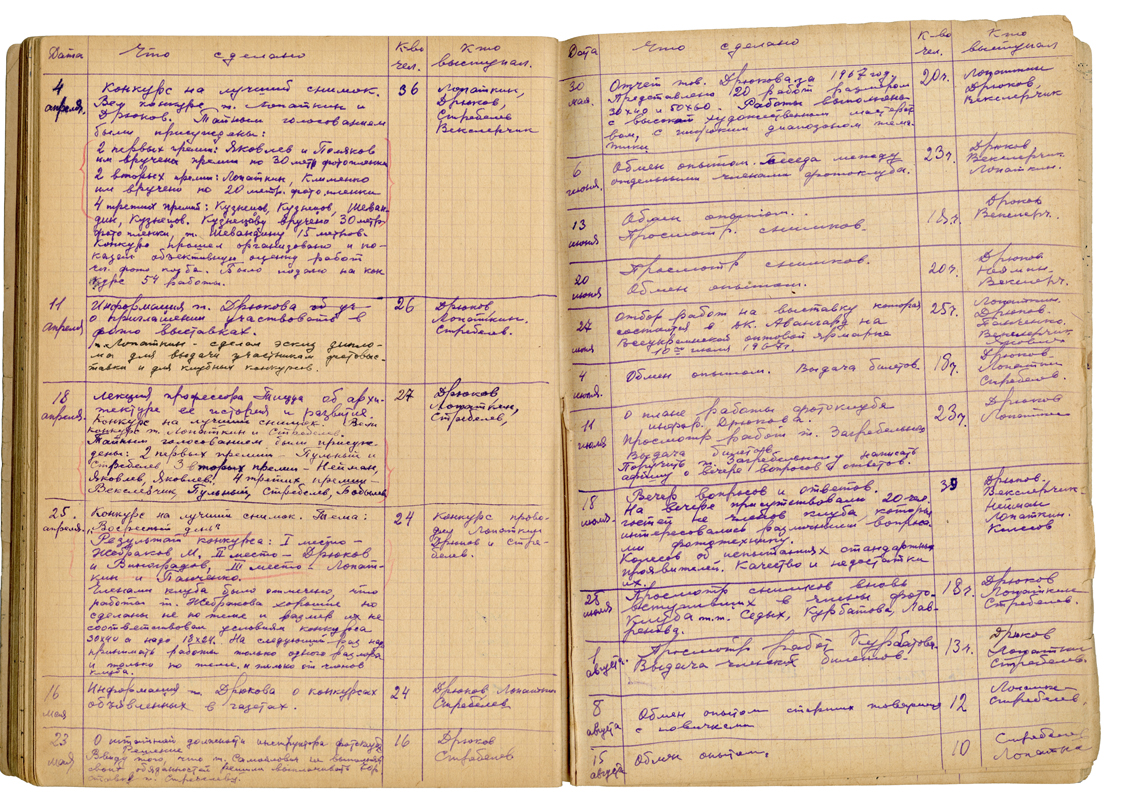 Дата Что сделано К-во чел. Кто выступал.
4 апреля.
Конкурс на лучший снимок.
Вел конкурс т. Лопаткин и
Дрюков. Тайным голосованием
были присуждены:
2 первых премии: Яковлев и Поляков
им вручена премия по 30 метр фотопленки
2 вторых премии: Лопаткин, Клименко
им вручено по 20 метр. фото пленки
4 третьих премий: Кузнецов, Кузнецов, Шеван-
дин, Кузнецов. Кузнецову вручено 30 метр.
фото пленки, т. Шевандину 15 метров.
Конкурс прошел организовано и по-
казал объективную оценку работ
Было подано на кон-
курс 54 работы.
36
Лопаткин,
Дрюков,
Стребелев
Векслерчик
11 апреля
Информация т. Дрюкова об уч-
о приглашении участвовать в
фото выставках.
т. Лопаткин - сделал эскиз дипло-
ма для выдачи участникам фотовыс-
тавки и для клубных конкурсов.
26
Дрюков
Лопаткин.
Стребелев.
18 апреля.
Лекция профессора Тицца об архи-
тектуре ее история и развитие.
Конкурс на лучший снимок. Вели
конкурс т. Лопаткин и Стребелев.
Тайным голосованием были присуж-
дены: 2 первых премии - Пульный и
Стребелев, 3 вторых премии - Нейман,
Яковлев, Яковлев. 4 третьих премии -
Векслерчик, Пульный, Стребелев,
27
Дрюков
Лопаткин,
Стребелев,
25. апреля.
Конкурс на лучший снимок. Тема:
"Весенний день"
Результат конкурса: I место -
Жебраков М. II место - Дрюков
и Виноградов, III место - Лопат-
кин и Панченко.
Членами клуба было отмечено, что
работы т. Жебракова хорошие но
сделаны не по теме и размер их не
соответствовал условиям конкурса
30х40 а надо 18х24. На следующий раз надо
принимать работы только одного размера
и только по теме, и только от членов
клуба.
24
Конкурс прово-
дил Лопаткин
Дрюков и Стре-
белев.
16 мая
Информация т. Дрюкова о конкурсах
объявленных в газетах.
24
Дрюков Лопаткин
Стребелев
23 мая
О штатной должности инструктора фотоклуба
Решение
Ввиду того, что т. Самойлович не выполняет
своих обязанностей решили выплачивать
т. Стребелеву.
16
Дрюков
Стребелев
Дата Что сделано К-во чел. Кто выступал
30 мая.
Отчет тов. Дрюкова за 1967 год.
Представлено 120 работ размером
30х40 и 50х60. Работы выполнены
с высоким художественным мастерст-
вом, с широким диапазоном тема-
тики
20 ч.
Лопаткин
Дрюков,
Векслерчик
6 июня.
Обмен опытом. Беседа между
отдельными членами фотоклуба.
23 ч.
Дрюков
Векслерчик
Лопаткин.
13 июня
Обмен опытом.
Просмотр снимков.
18 ч.
Дрюков
Векслерч.
20 июня
Просмотр снимков.
Обмен опытом.
20 ч.
Дрюков
Нейман
Векслерч.
24 июня
Отбор работ на выставку которая
состоится в ДК. Авангард на
Всеукраинской оптовой ярмарке
10го июля 1967 г.
25 ч.
Лопаткин.
Дрюков.
Панченко.
Векслерчик
4 июля.
Обмен опытом. Выдача билетов.
19 ч.
Дрюков
Лопаткин
Стребелев.
11 июля
О плане работы фотоклуба
инфор. Дрюкова.
Просмотр работ т. Загребельного
Выдача билетов.
Поручить т. Загребельному написать
афишу о вечере вопросов и ответов.
23 ч.
Дрюков
Лопаткин
18 июля.
Вечер вопросов и ответов.
На вечере присутствовали 20 чел.
гостей не членов клуба, которые
интересовались различными вопроса-
ми фототехники.
Колесов об испытаниях стандартных
проявителей. Качество и недостатки
их.
39
Дрюков.
Векслерчик-
Нейман
Лопаткин.
Колесов
25 июля
Просмотр снимков вновь
вступивших в члены фото-
клуба т.т. Седых, Курбатова, Лав-
ренова.
18 ч.
Дрюков
Лопаткин
Стребелев.
1 августа.
Просмотр работ Курбатова.
Выдача членских билетов.
13 ч.
Дрюков
Лопаткин
Стребелев.
8 августа
Обмен опытом старших товарищей
с новичками
12
Лопаткин
Стребелев.
15 августа
Обмен опытом,
10
Стребелев
Лопатка